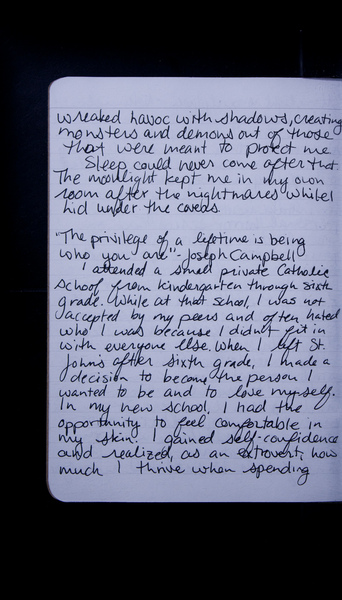 wreaked havoc with shadows, creating
monsters and demons out of those
that were meant to protect me
Sleep could never come after that.
The moonlight kept me in my own
room after the nightmares while I
hid under the covers.
"The privilege of a lifetime is being
who you are" - Joseph Campbell
I attended a small private Catholic
school from kindergarten through sixth
grade. While at that school, I was not
accepted by my peers and often hated
who I was because I didn't fit in
with everyone else. When I left St.
John's after sixth grade, I made a
decision to become the person I
wanted to be and to love myself.
In my new school, I had the
opportunity to feel comfortable in
my skin. I gained self-confidence
and realized, as an extrovert, how
much I thrive when spending